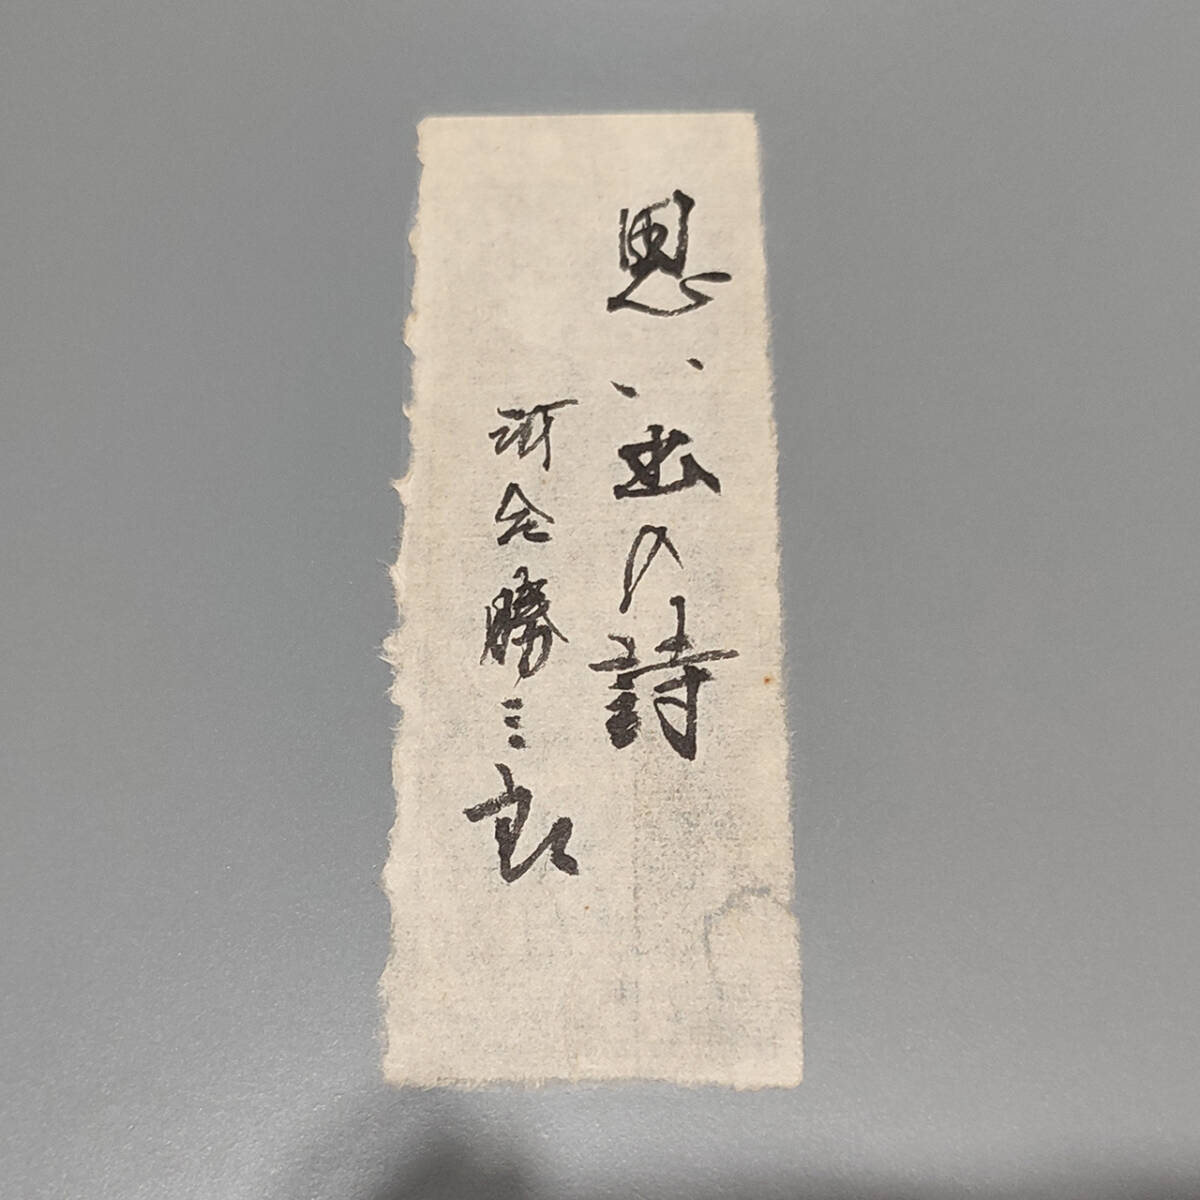 思い出の詩
河合勝三郎